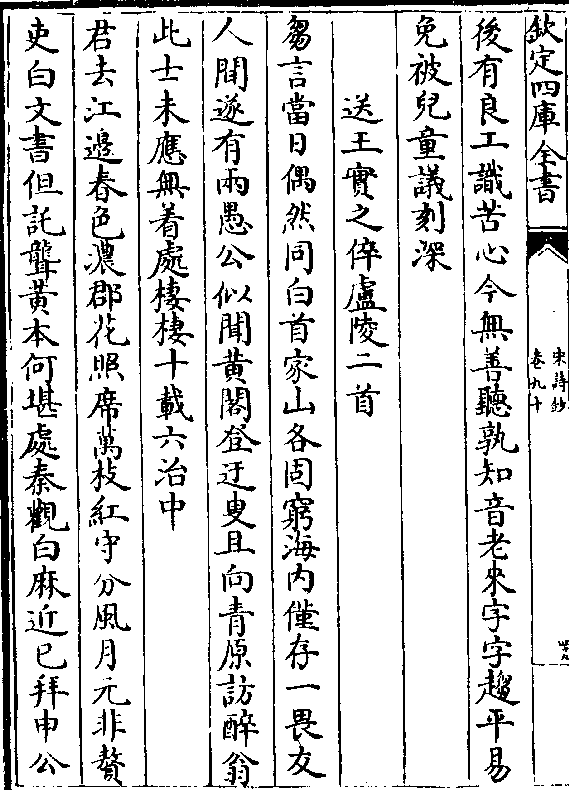 欽定四庫全書
宋詩鈔
卷九十
後有良工識苦心今無善聽孰知音老來字字趨平易
免被兒童議刻深
送王實之倅盧陵二首
芻言當日偶然同白首家山各固窮海内僅存一畏友
人間遂有兩愚公似聞黃閣登迂叟且向青原訪醉翁
此士未應無着處棲棲十載六治中
君去江邊春色濃郡花照席萬枝紅守分風月元非贅
吏白文書但託聾黃本何堪處秦觀白麻近已拜申公